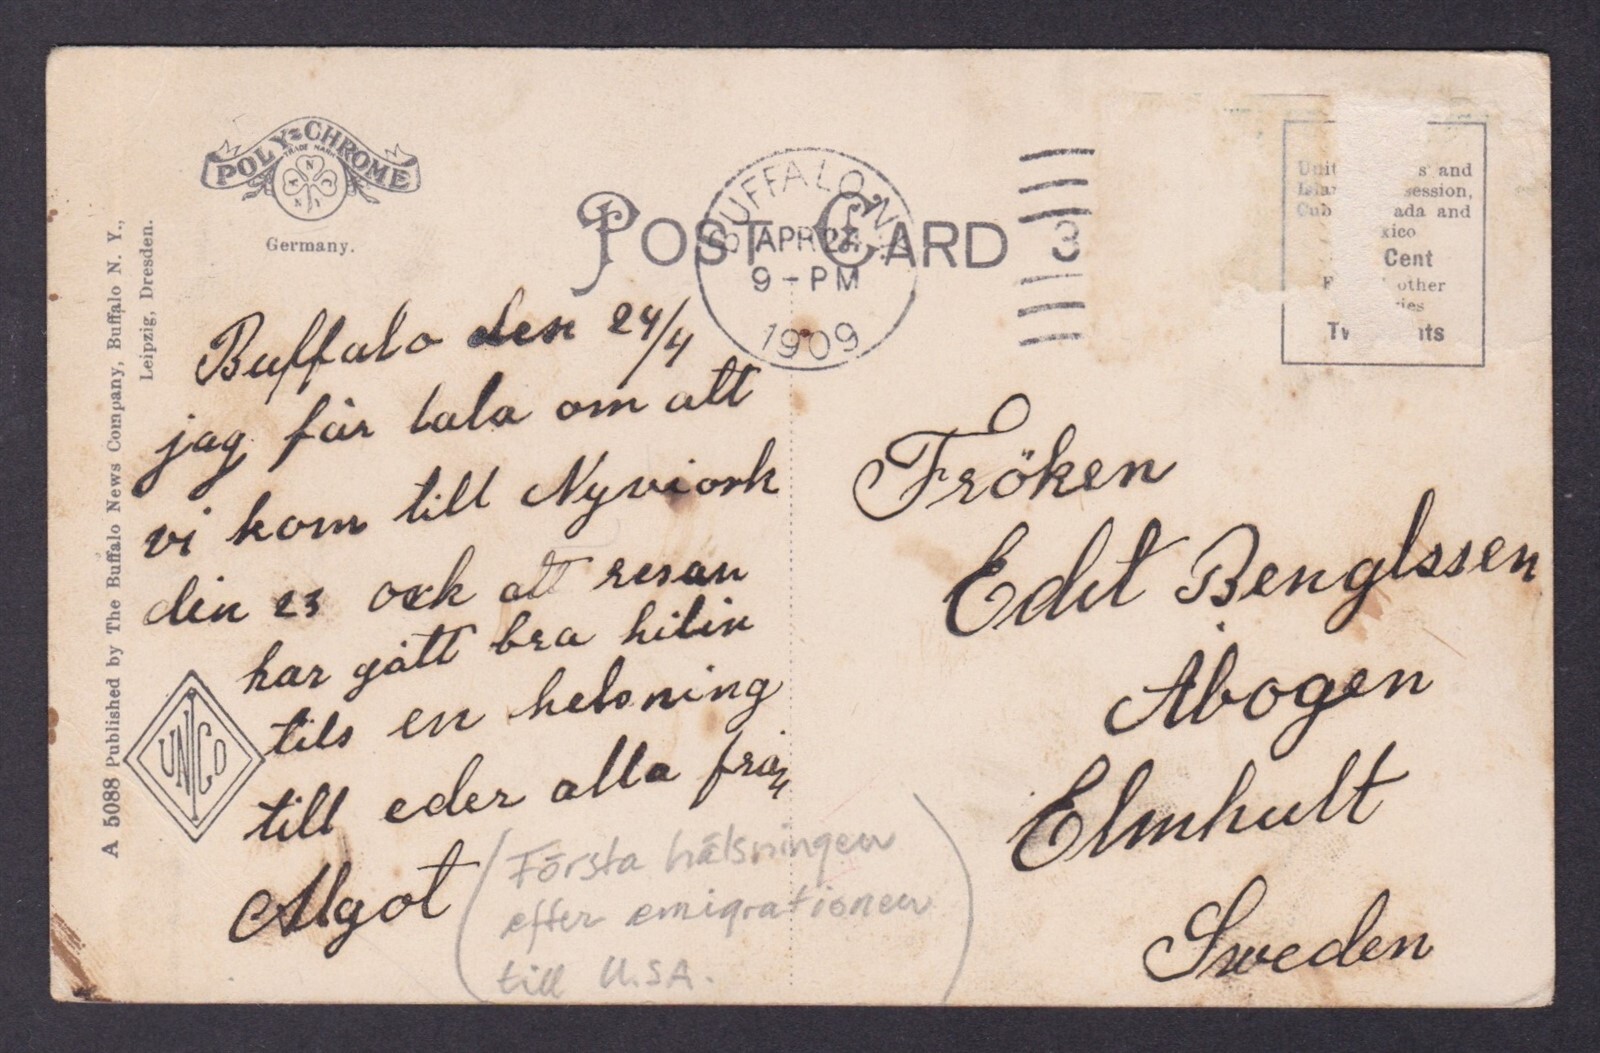 POLY-CHROME
TRADE MARK
Germany.
POST CARD
BUFFALO, N.Y.
APR 24
9-PM
1909
3
and
session,
ada and
xico
Cent
other
ies
Tw nts
A 5088 Published by The Buffalo News Company, Buffalo N. Y.,
Leipzig, Dresden.
UNITCO
Buffalo den 24/4
jag får tala om att
vi kom till Nyviork
din 23 ock att resan
har gått bra hilin
tils en helsning
till eder alla från
Algot
(Första hälsningen
efter emigrationen
till U.S.A.)
Fröken
Edit Bengtssen
Åbogen
Elmhult
Sweden